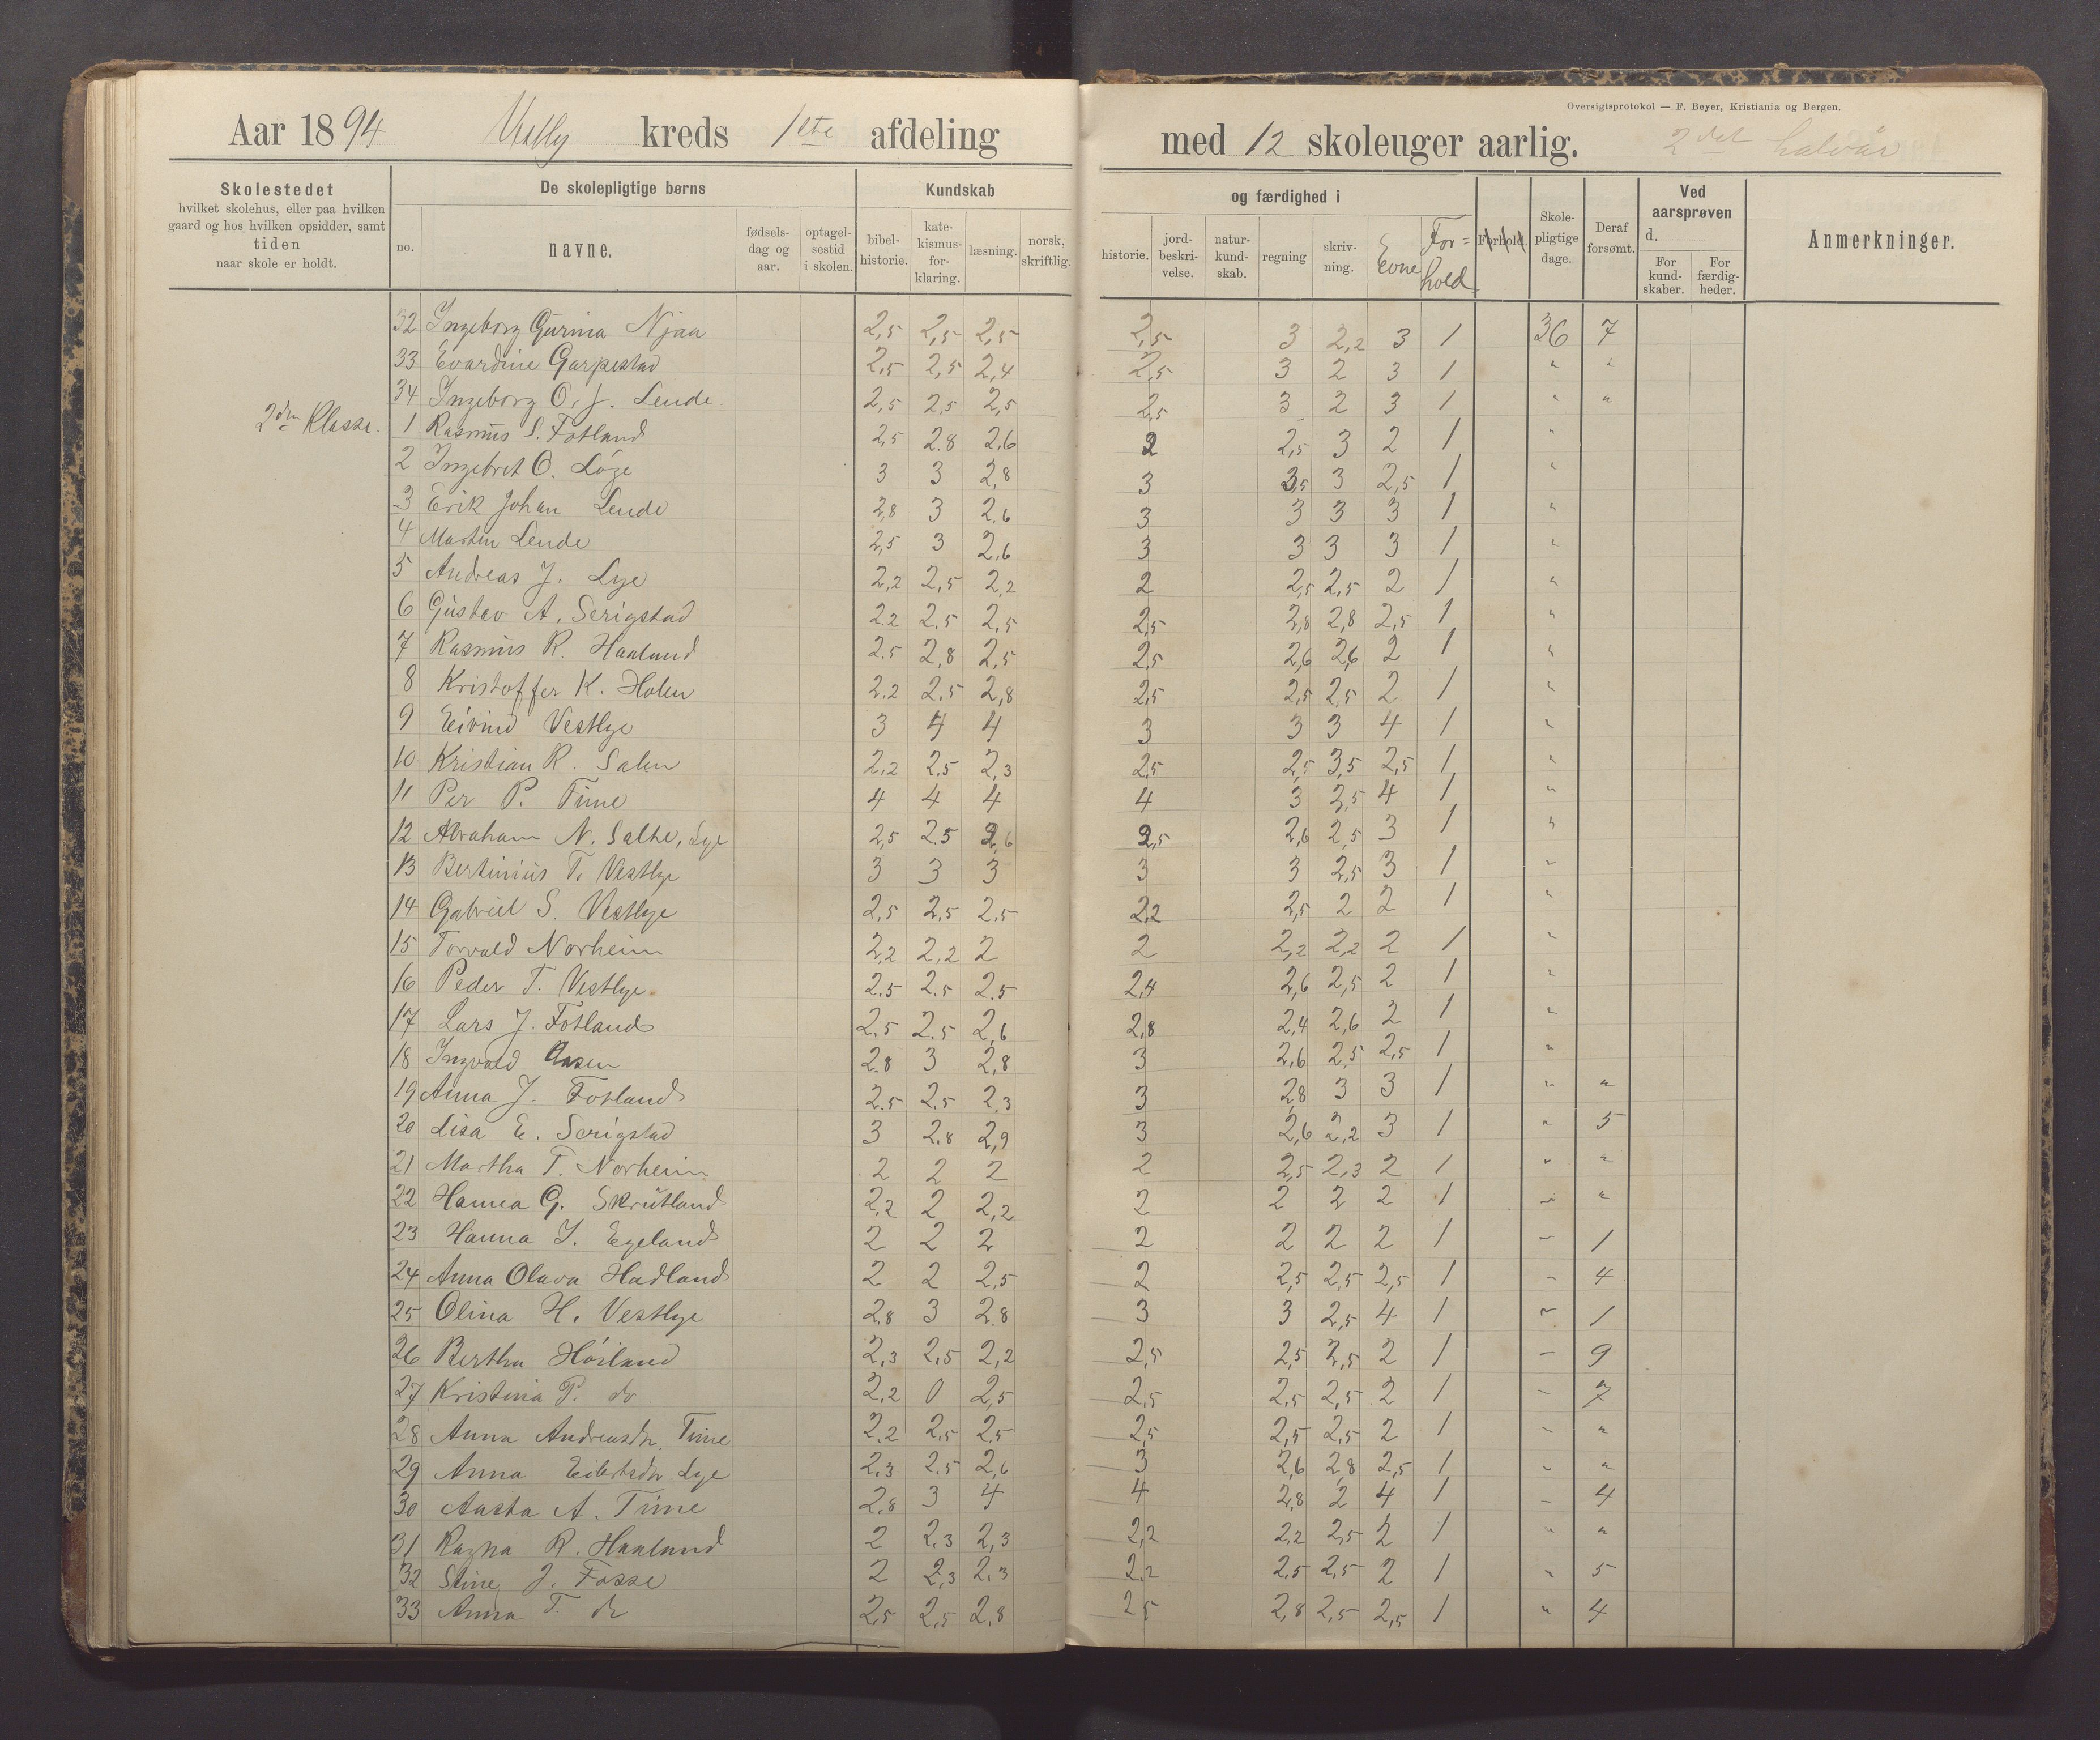 Oversigtsprotokol — F. Beyer, Kristiania og Bergen.
Aar 1894 kreds 1ste afdeling med 12 skoleuger aarlig. 2det halvår
Skolestedet
hvilket skolehus, eller paa hvilken
gaard og hos hvilken opsidder, samt
tiden
naar skole er holdt.
De skolepligtige børns
no. navne. fødsels-dag og aar. optagel-sestid i skolen.
Kundskab og færdighed i
bibel-historie. kate-kismus-for-klaring. læsning. norsk, skriftlig. historie. jord-beskri-velse. natur-kund-skab. regning skriv-ning. Evne For=hold Forhold.
Skole-pligtige dage. Deraf forsømt.
Ved aarsprøven d.
For kund-skaber. For færdig-heder.
Anmerkninger.
32 Ingeborg Gurina Njaa 2,5 2,5 2,5 2,5 3 2,2 3 1 36 7
33 Evardine Garpestad 2,5 2,5 2,4 2,5 3 2 3 1 " "
34 Ingeborg O. J. Lende 2,5 2,5 2,5 2,5 3 2 3 1 " "
2den Klasse. 1 Rasmus S. Fotland 2,5 2.8 2,6 2 2,5 3 2 1 "
2 Ingebret O. Løge 3 3 2,8 3 3,5 3 2,5 1 "
3 Erik Johan Lende 2,8 3 2.6 3 3 3 3 1 "
4 Martin Lende 2,5 3 2,6 3 3 3 3 1 "
5 Andreas J. Lye 2,2 2,5 2,2 2 2,5 2,5 2 1 "
6 Gustav A. Serigstad 2.2 2.5 2,5 2,5 2,8 2,8 2,5 1 "
7 Rasmus R. Haaland 2.5 2,8 2,5 2,5 2,6 2,6 2 1 "
8 Kristoffer K. Holen 2,2 2.5 2,8 2,5 2,5 2,5 2 1 "
9 Eivind Vestlye 3 4 4 3 3 3 4 1 "
10 Kristian R. Salen 2,2 2.5 2,3 2,5 2,5 3,5 2,5 1 "
11 Per P. Time 4 4 4 4 3 2,5 4 1 "
12 Abraham N. Salte, Lye 2,5 2.5 2,6 2,5 2,6 2,5 3 1 "
13 Bertinius T. Vestlye 3 3 3 3 3 2,5 3 1 "
14 Gabriel S. Vestlye 2,5 2,5 2.5 2,2 2,5 2 2 1 "
15 Torvald Norheim 2,2 2,2 2 2 2,2 2,2 2 1 "
16 Peder T. Vestlye 2.5 2.5 2.5 2,4 2,6 2,5 2 1 "
17 Lars J. Fotland 2.5 2.5 2,6 2,8 2,4 2,6 2 1 "
18 Ingvald Aasen 2.8 3 2,8 3 2,6 2,5 2,5 1 "
19 Anna J. Fotland 2.5 2.5 2,3 3 2,8 3 3 1 " "
20 Lisa E. Serigstad 3 2.8 2,9 3 2,6 2,2 3 1 " 5
21 Martha T. Norheim 2 2 2 2 2,5 2,3 2 1 " "
22 Hanna G. Skrutland 2,2 2 2,2 2 2 2 2 1 " "
23 Hanna J. Egeland 2 2 2 2 2 2 2 1 " 1
24 Anna Olava Hadland 2 2 2,5 2 2,5 2,5 2,5 1 " 4
25 Olina H. Vestlye 2,8 3 2.8 3 3 2,5 4 1 " 1
26 Bertha Høiland 2,3 2,5 2,2 2,5 2,5 2,5 2 1 " 9
27 Kristina P. do 2,2 0 2,5 2,5 2,5 2,5 2 1 " 7
28 Anna Andreasdr. Time 2.2 2,5 2.5 2,5 2,5 2,5 2 1 " "
29 Anna Eilertsdr. Lye 2.3 2.5 2,6 3 2,6 2,8 2,5 1 " "
30 Aasta A. Time 2,8 3 4 4 2,8 2 4 1 " 4
31 Ragna R. Haaland 2 2,3 2,3 2,2 2,2 2,5 2 1 " "
32 Stine J. Fosse 2 2,3 2,3 2,2 2,5 2,5 2 1 " 5
33 Anna T. do 2,5 2,5 2,8 2,5 2,8 2,5 2,5 1 " 4